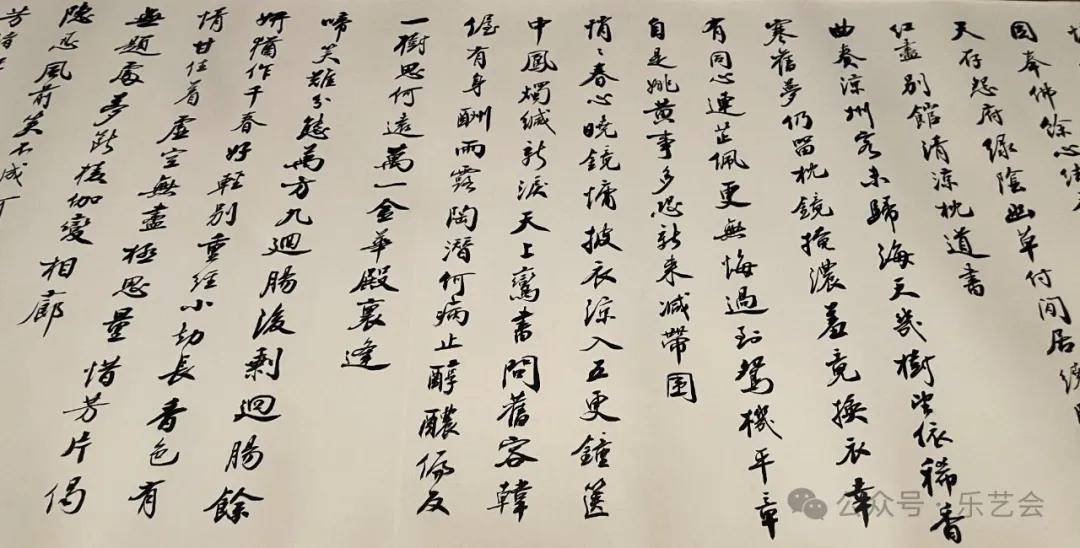 因奉佛餘心結
天存怨府綠陰幽草付閒居繞
紅盡別館清涼枕道書
曲奏涼州客未歸海天幾樹皆依稀香
寒舊夢仍留枕鏡掩濃羞竟換衣幸
有同心連芷佩更無悔過到鴛機平章
自是姚黃事多恐新來減帶圍
悄〻春心曉鏡慵披衣涼入五更鐘篋
中鳳燭緘新淚天上鸞書問舊容韓
偓有身酬雨露陶潛何病止醇醲偏反
一樹思何遠萬一金華殿裏逢
啼笑難分慰萬方九迴腸後剩迴腸餘
妍猶作千春好輕別重經小劫長香色有
情甘住着虛空無盡極思量惜芳片偈
無題處夢斷楞伽變相廊
風前笑不成
公众号·乐艺会